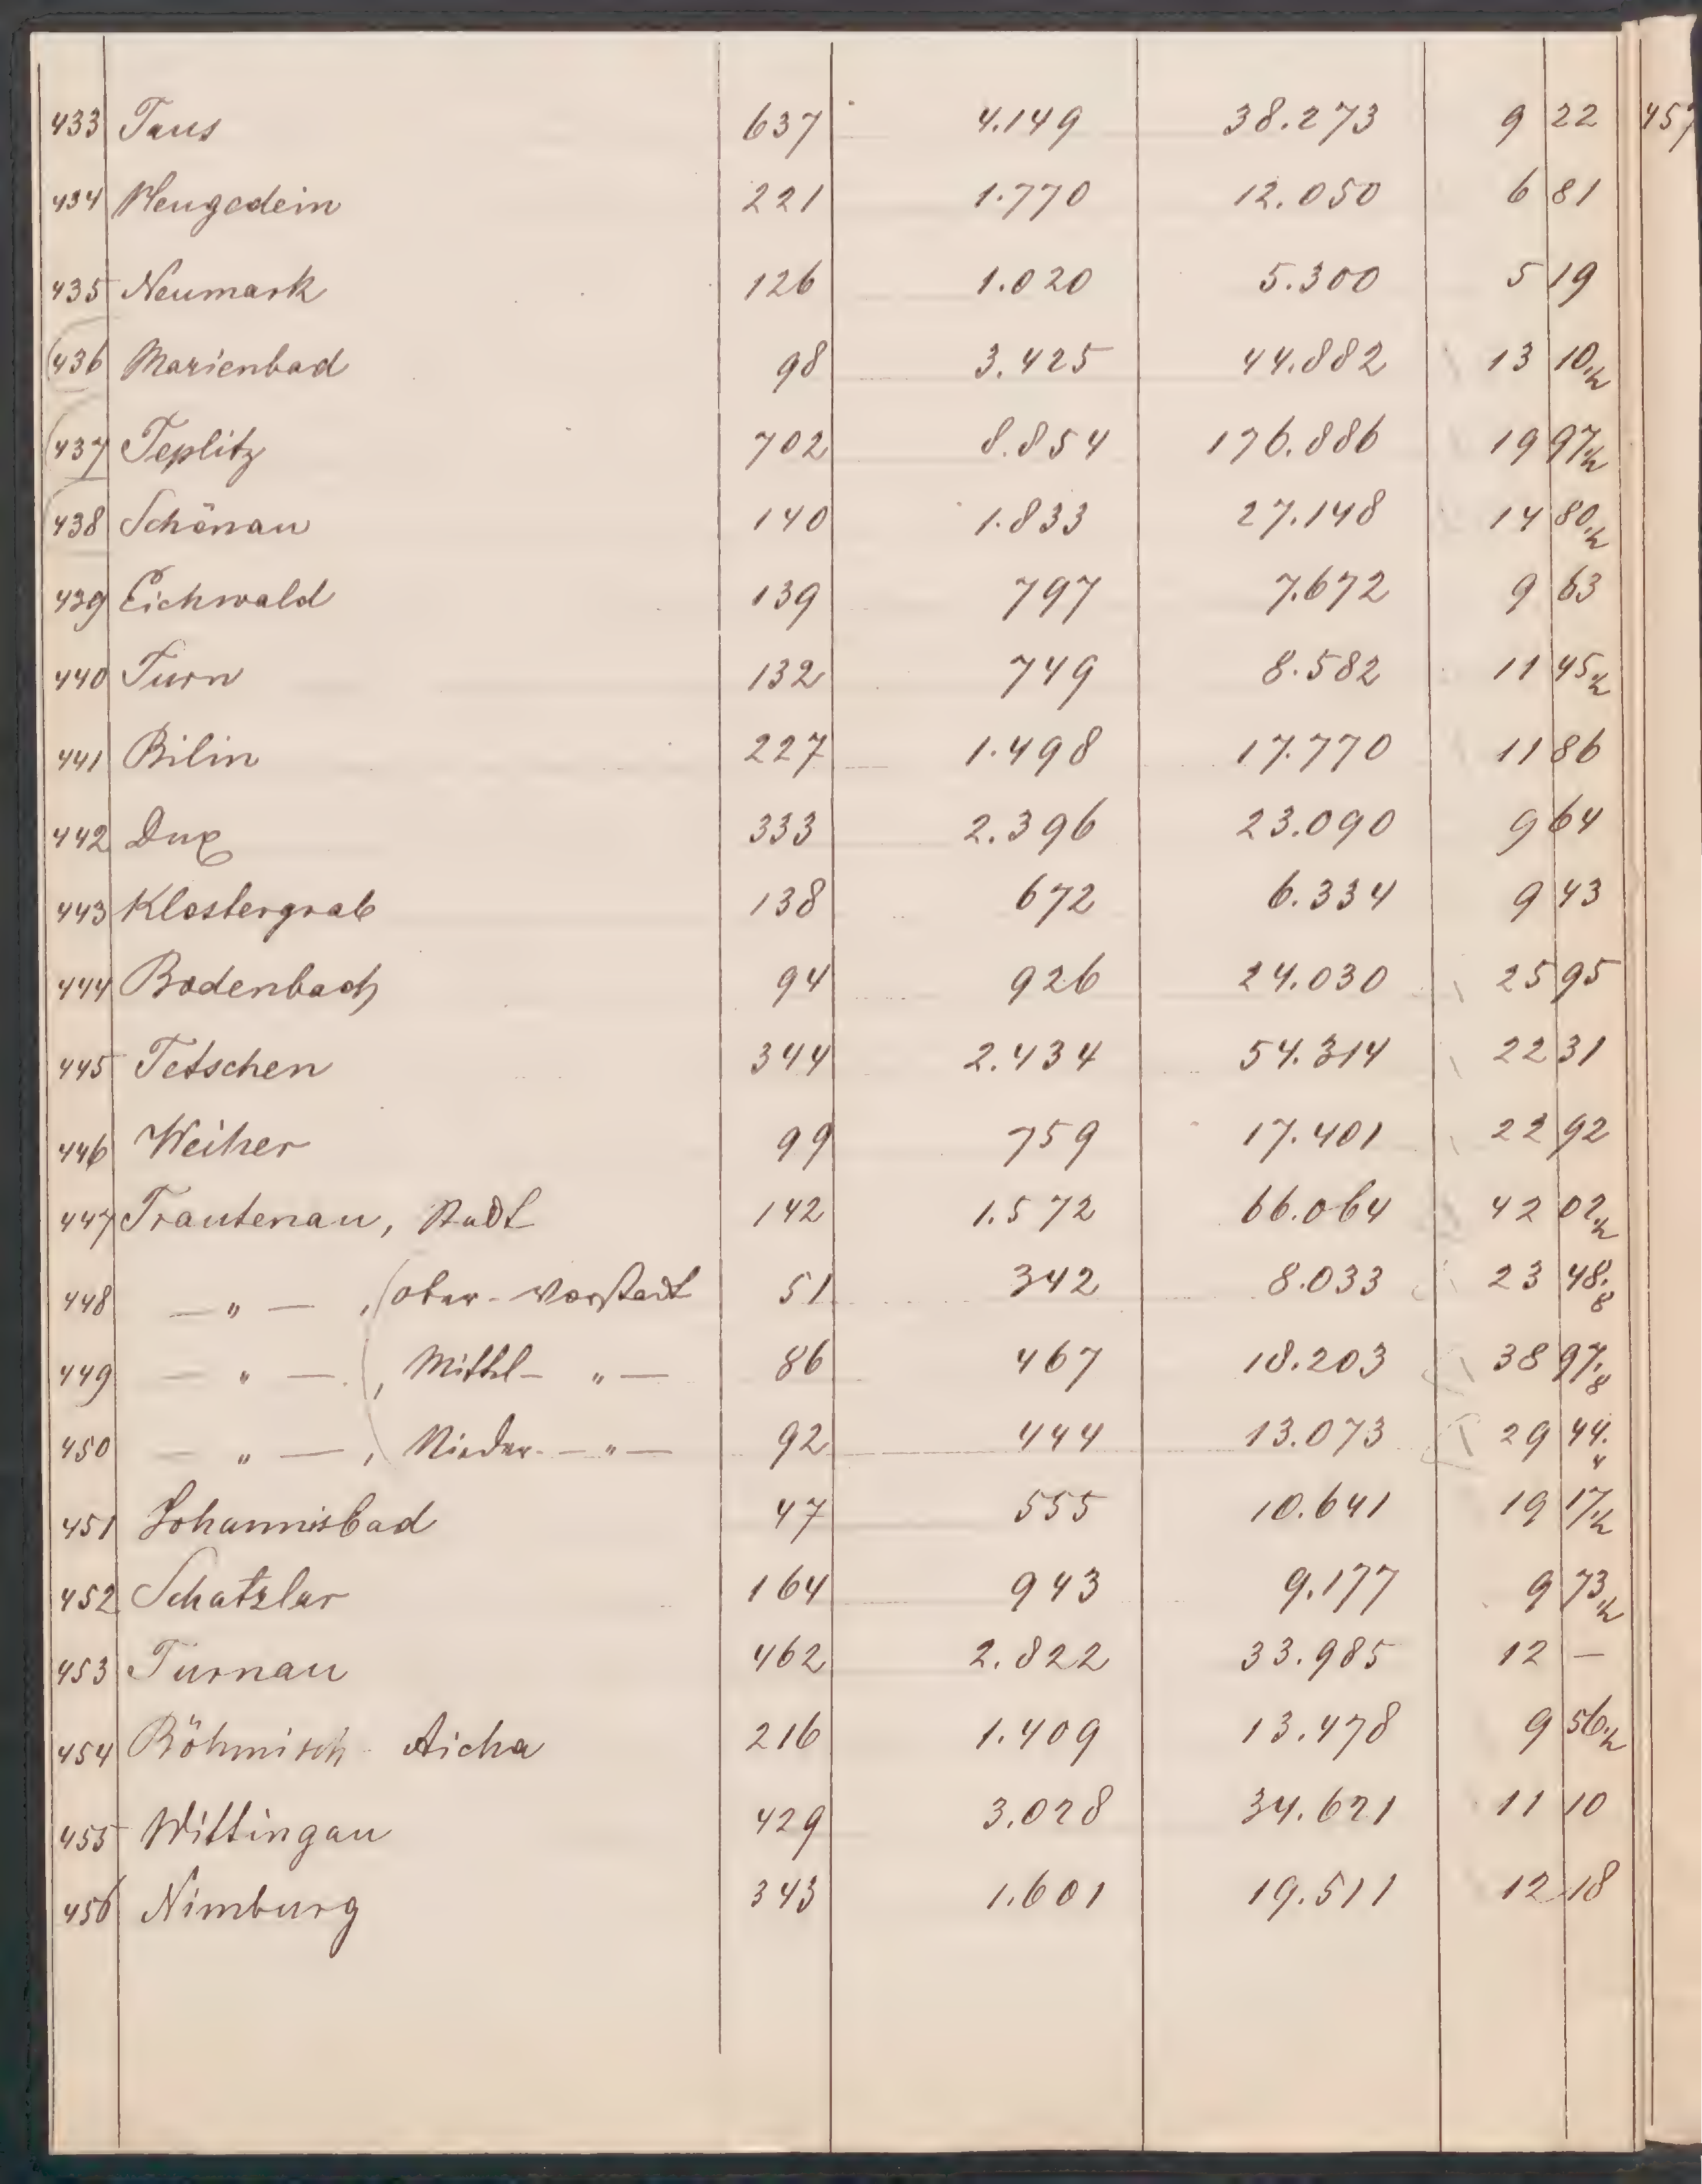 433 Taus 637 4.149 38.273 9 22 457
434 Neugedein 221 1.770 12.050 6 81
435 Neumark 126 1.020 5.300 5 19
436 Marienbad 98 3.425 44.882 13 10.½
437 Teplitz 702 8.854 176.886 19 97.½
438 Schönau 140 1.833 27.148 14 80.½
439 Eichwald 139 797 7.672 9 63
440 Turn 132 749 8.582 11 45.½
441 Bilin 227 1.498 17.770 11 86
442 Dux 333 2.396 23.090 9 64
443 Klostergrab 138 672 6.334 9 43
444 Bodenbach 94 926 24.030 25 95
445 Tetschen 344 2.434 54.314 22 31
446 Weiher 99 759 17.401 22 92
447 Trautenau, Stadt 142 1.572 66.064 42 02.½
448 — " — , (Ober-Vorstadt 51 342 8.033 23 48.8
449 — " — , Mittel- " — 86 467 18.203 38 97.8
450 — " — , Nieder- — " — 92 444 13.073 29 44.4
451 Johannisbad 47 555 10.641 19 17.½
452 Schatzlar 164 943 9.177 9 73.½
453 Turnau 462 2.822 33.985 12 —
454 Böhmisch Aicha 216 1.409 13.478 9 56.½
455 Wittingau 429 3.028 34.621 11 10
456 Nimburg 343 1.601 19.511 12 18